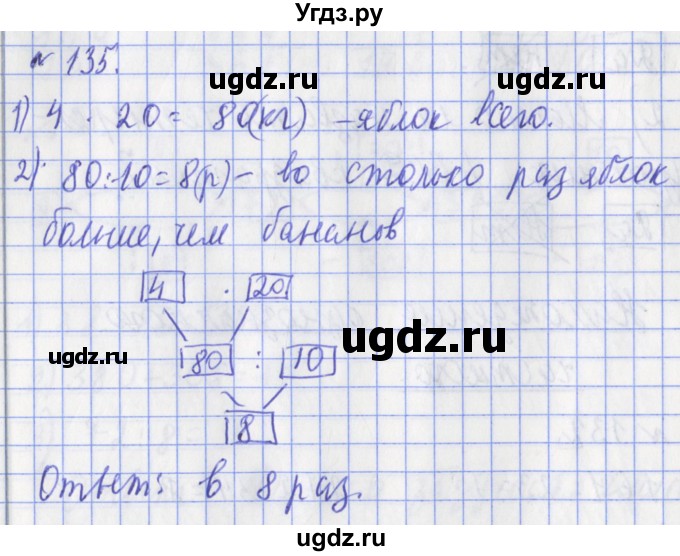 Угдз.ру
№ 135.
ugdz.ru ugdz.ru
1) 4 · 20 = 80(кг) – яблок всего.
2) 80:10=8(р) – во столько раз яблок
больше, чем бананов
4 · 20
ugdz.ru ugdz.ru
80 : 10
8
Ответ: в 8 раз.
ugdz.ru ugdz.ru